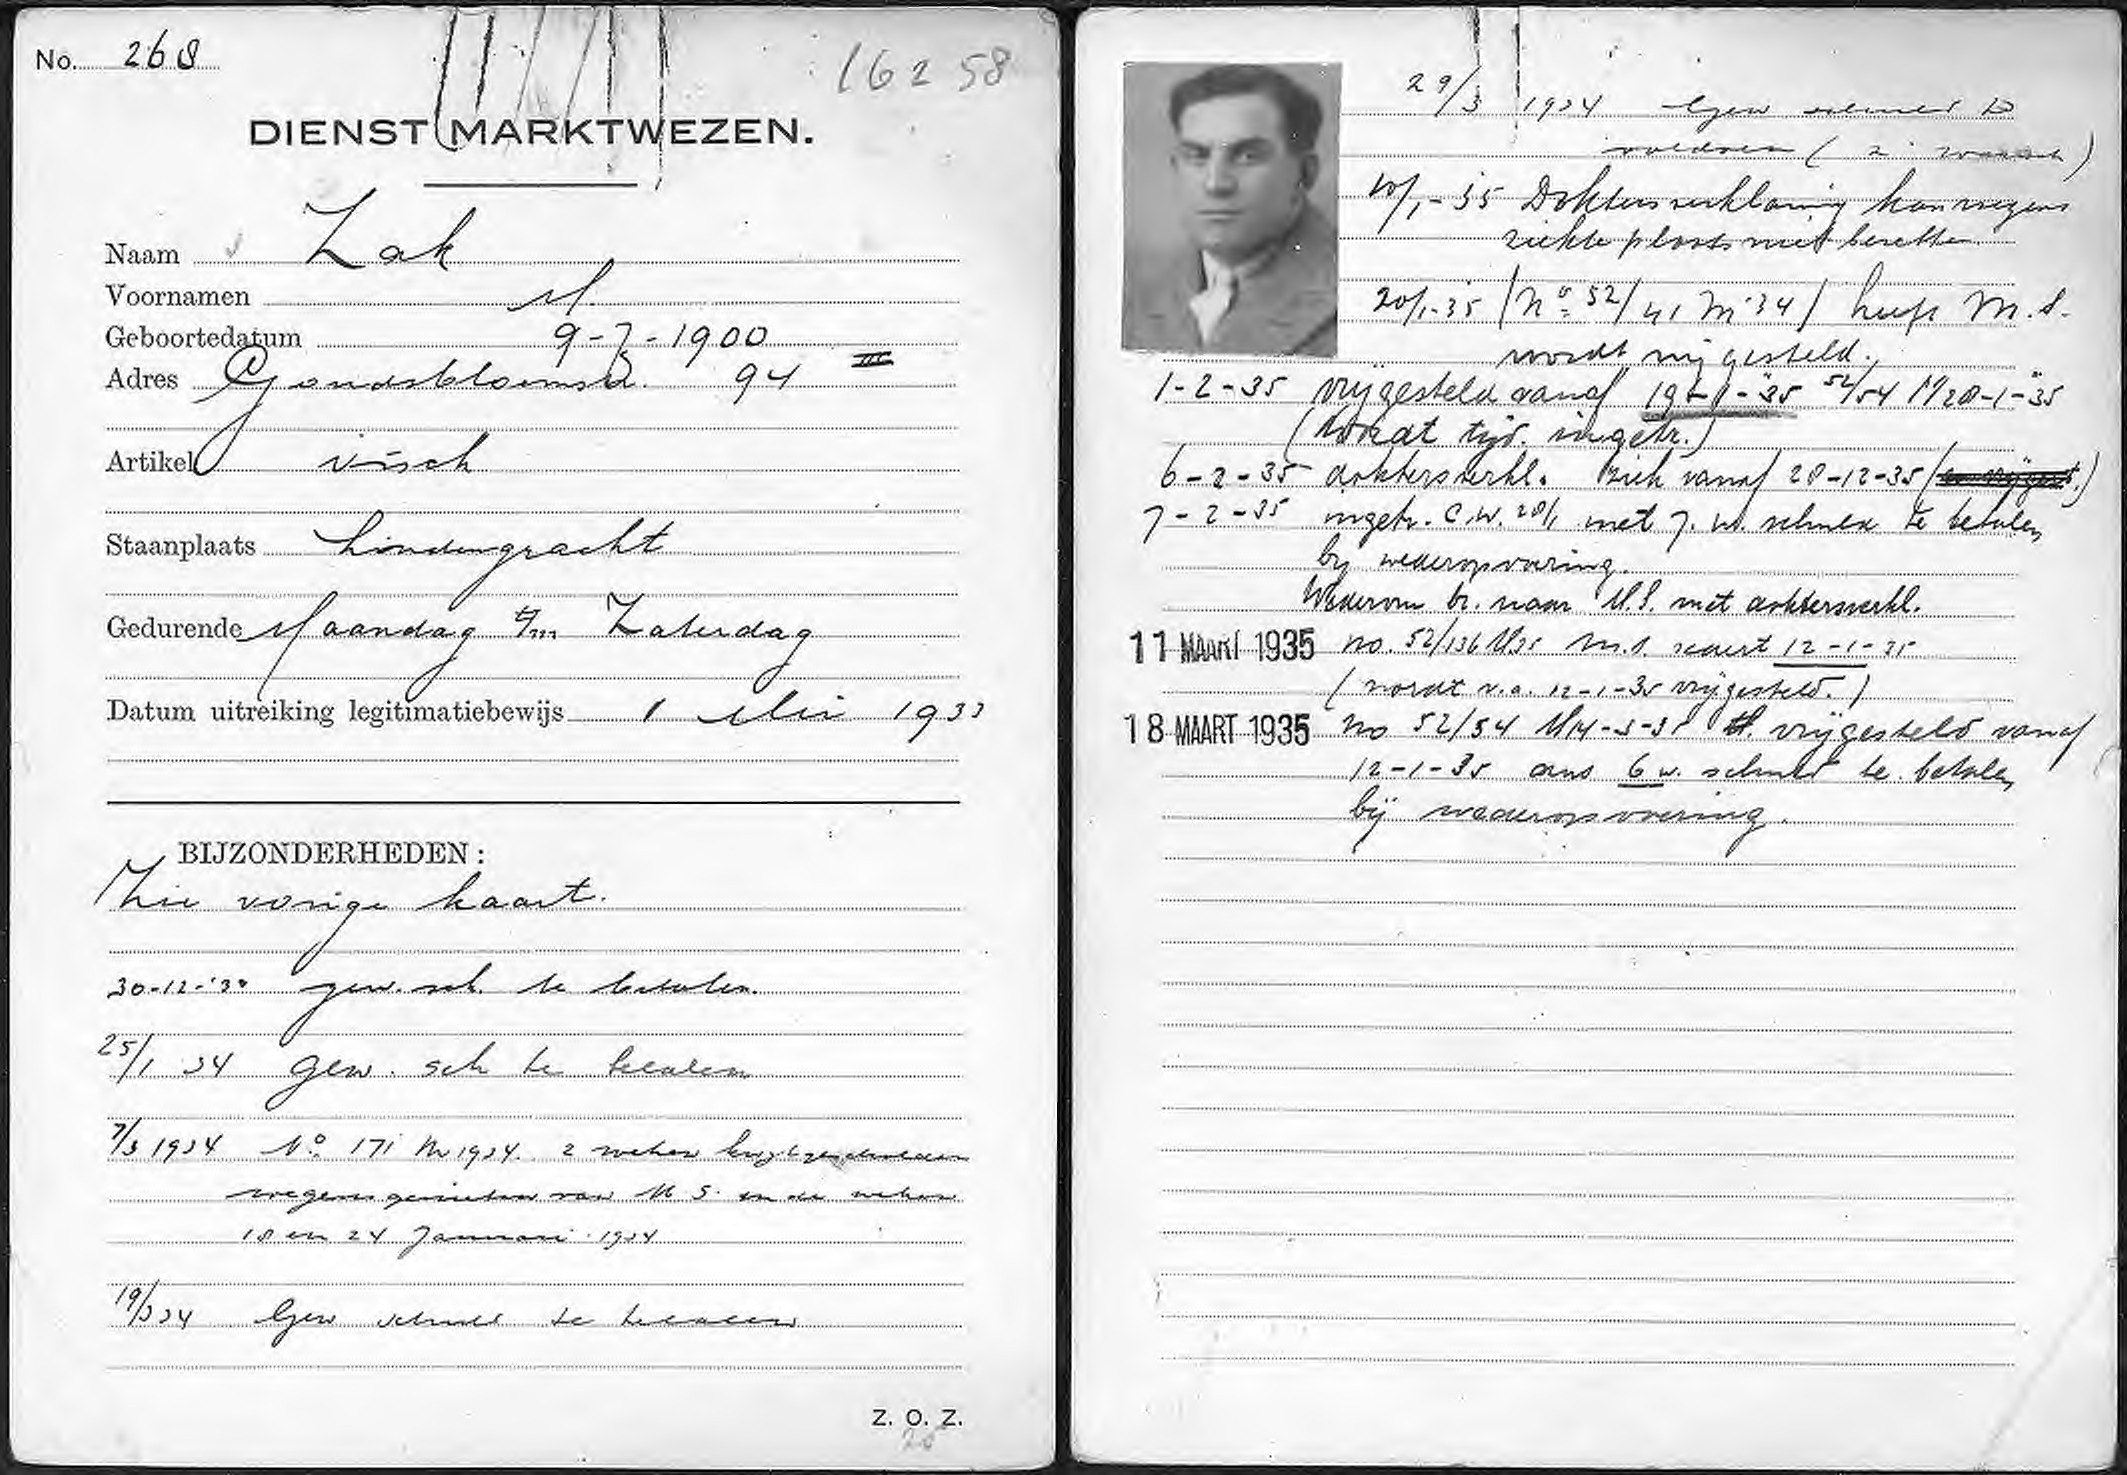 No. 268
162 58
DIENST MARKTWEZEN.
Naam Zak
Voornamen M.
Geboortedatum 9-7-1900
Adres Goudsbloemstr. 94 III
Artikel visch
Staanplaats Lindengracht
Gedurende Maandag t/m Zaterdag
Datum uitreiking legitimatiebewijs 1 Mei 1933
BIJZONDERHEDEN:
Zie vorige kaart.
30-12-'33 gew. sch. te betalen.
25/1 34 gew. sch te betalen
7/3 1934 No. 171 M 1934. 2 weken
wegens genieten van M S. in de weken
18 en 24 Januari 1934
19/3 34 Gew schuld te betalen
Z. O. Z.
29/3 1934 Gew schuld
voldoen (
10/1-35 Doktersverklaring kan wegens
ziekte plaats niet bezetten
20/1-35 (No 52/41 M '34) heeft M.S.
wordt vrijgesteld.
1-2-35 vrijgesteld vanaf 52/54 M 28-1-35
(Wordt tijd. ingetr.)
6-2-35 doktersverkl. Ziek vanaf 28-12-35
7-2-35 ingetr. C.W. 28/1 met 7. w. schuld te betalen
bij wederopvoering.
Wederom br. naar M.S. met doktersverkl.
11 MAART 1935 no. 52/136 M35 M.S. 12-1-35
(wordt v.a. 12-1-35 vrijgesteld.)
18 MAART 1935 no 52/54 M14-3-35 vrijgesteld vanaf
12-1-35 dus 6 w. schuld te betalen
bij wederopvoering.